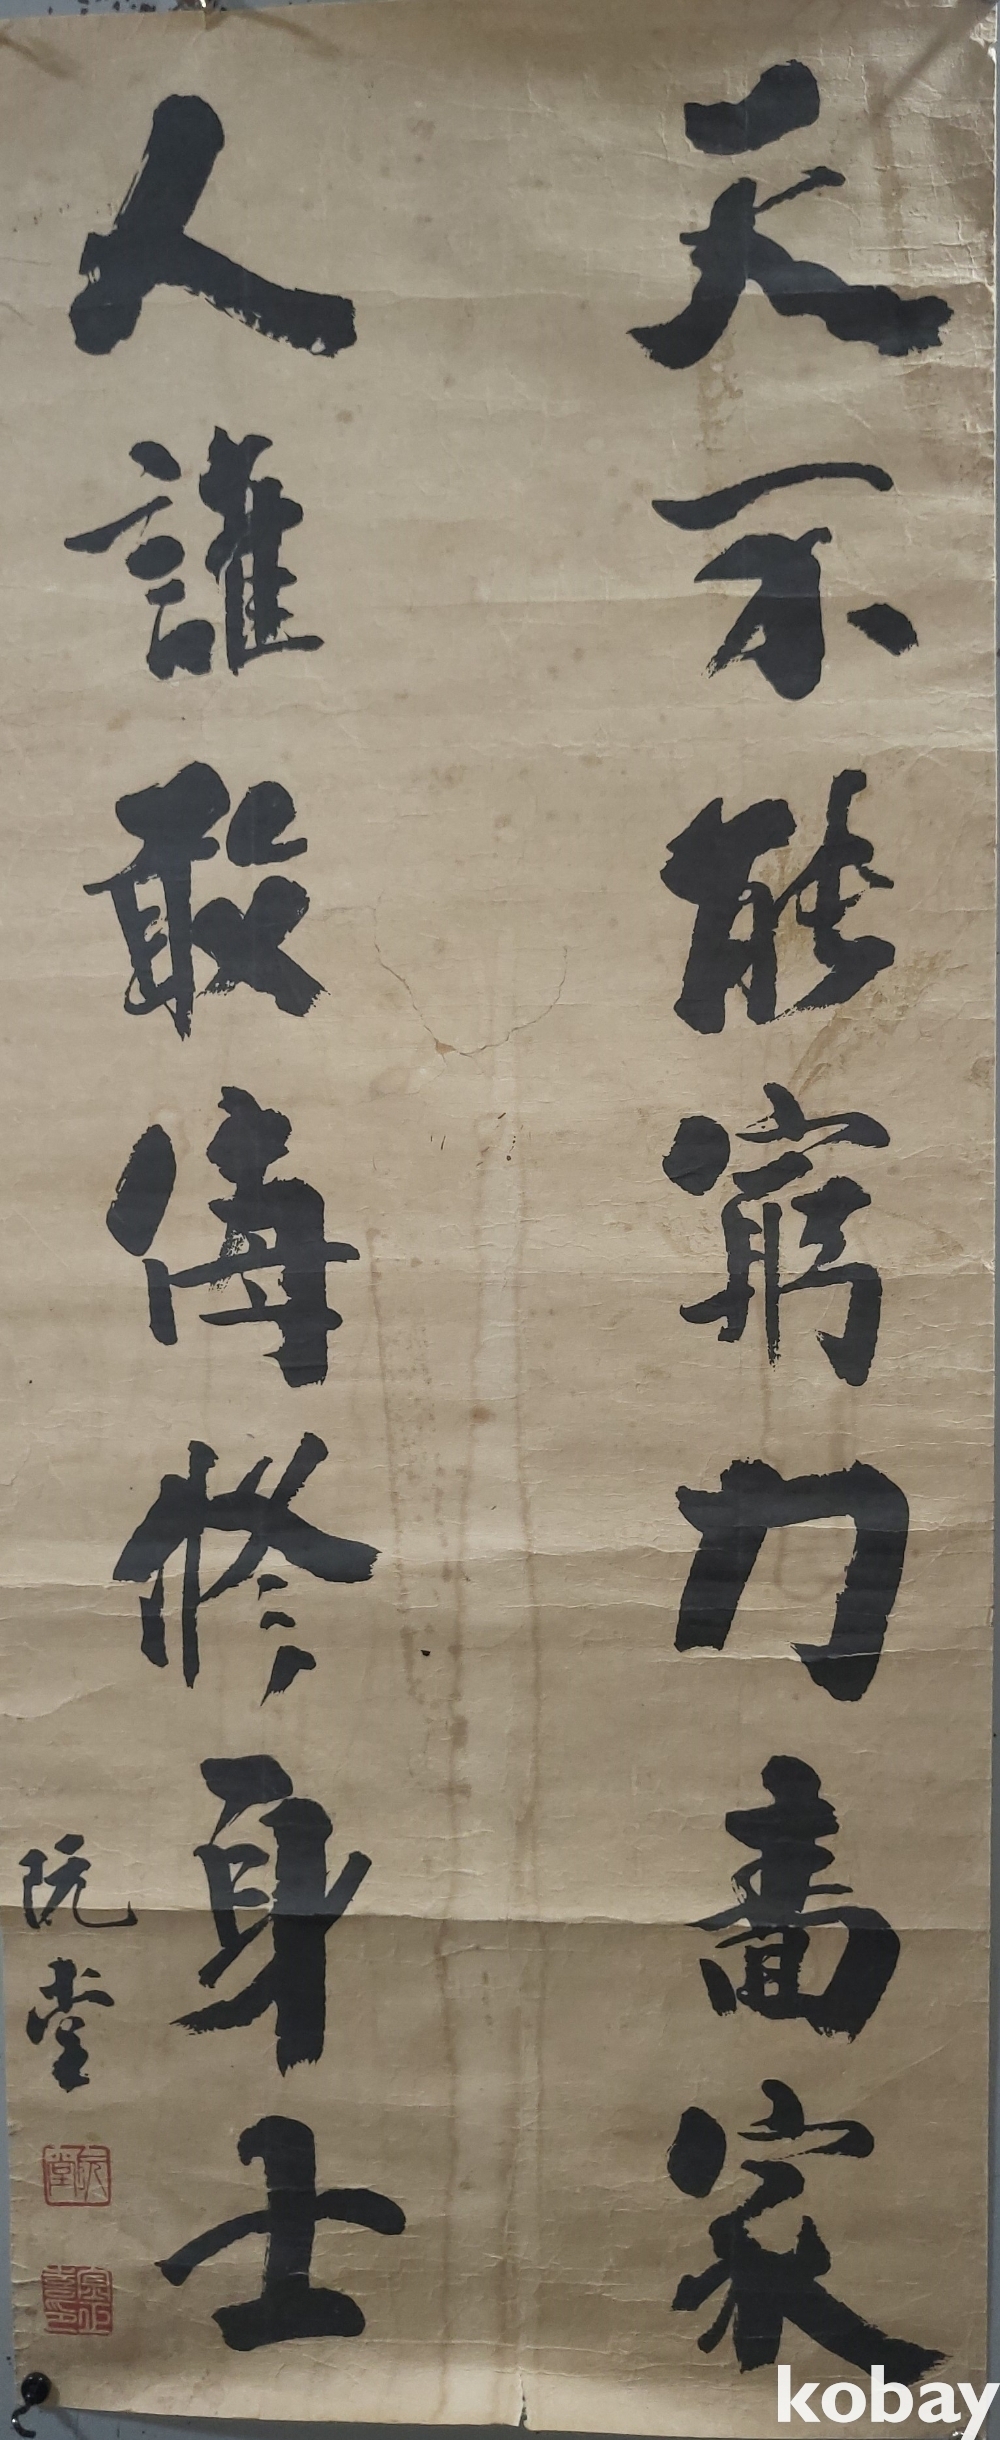 天不能窮力嗇家
人誰敢侮修身士
阮堂
阮堂
kobay